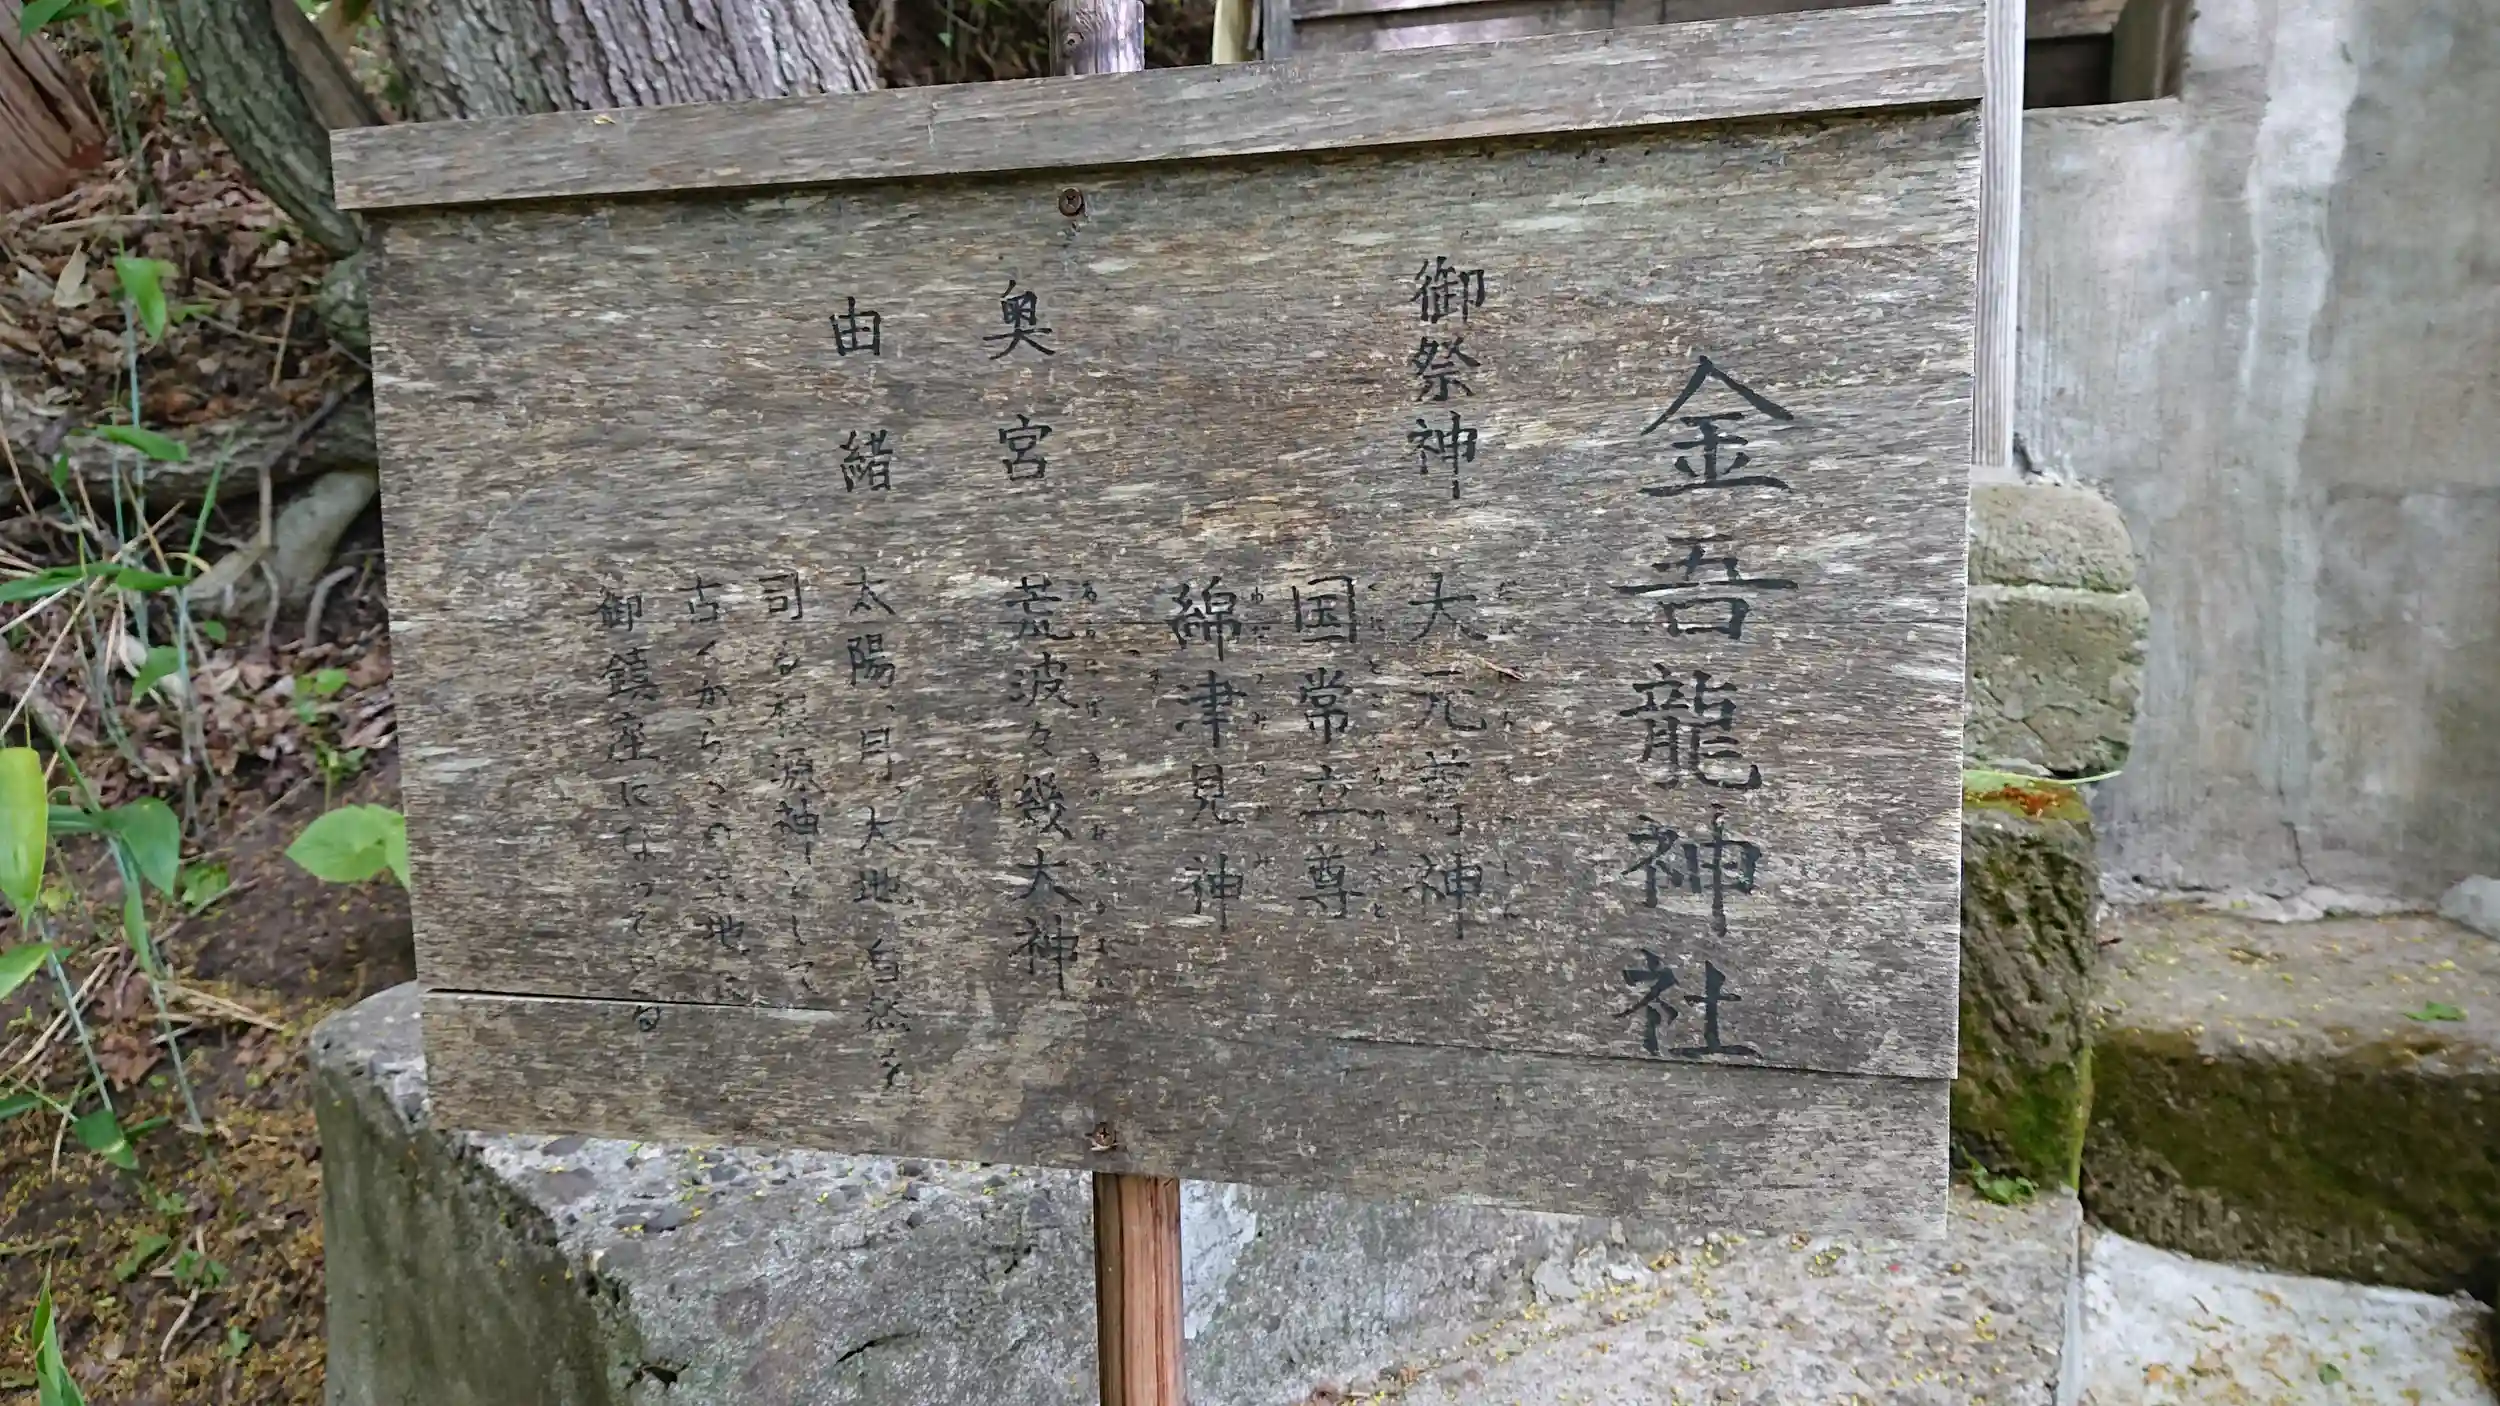 金吾龍神社
御祭神 大元尊神
国常立尊
綿津見神
奥宮 荒波々幾大神
由緒 太陽、月、大地、自然を
司る根源神として
古くから、この土地に
御鎮座になっている